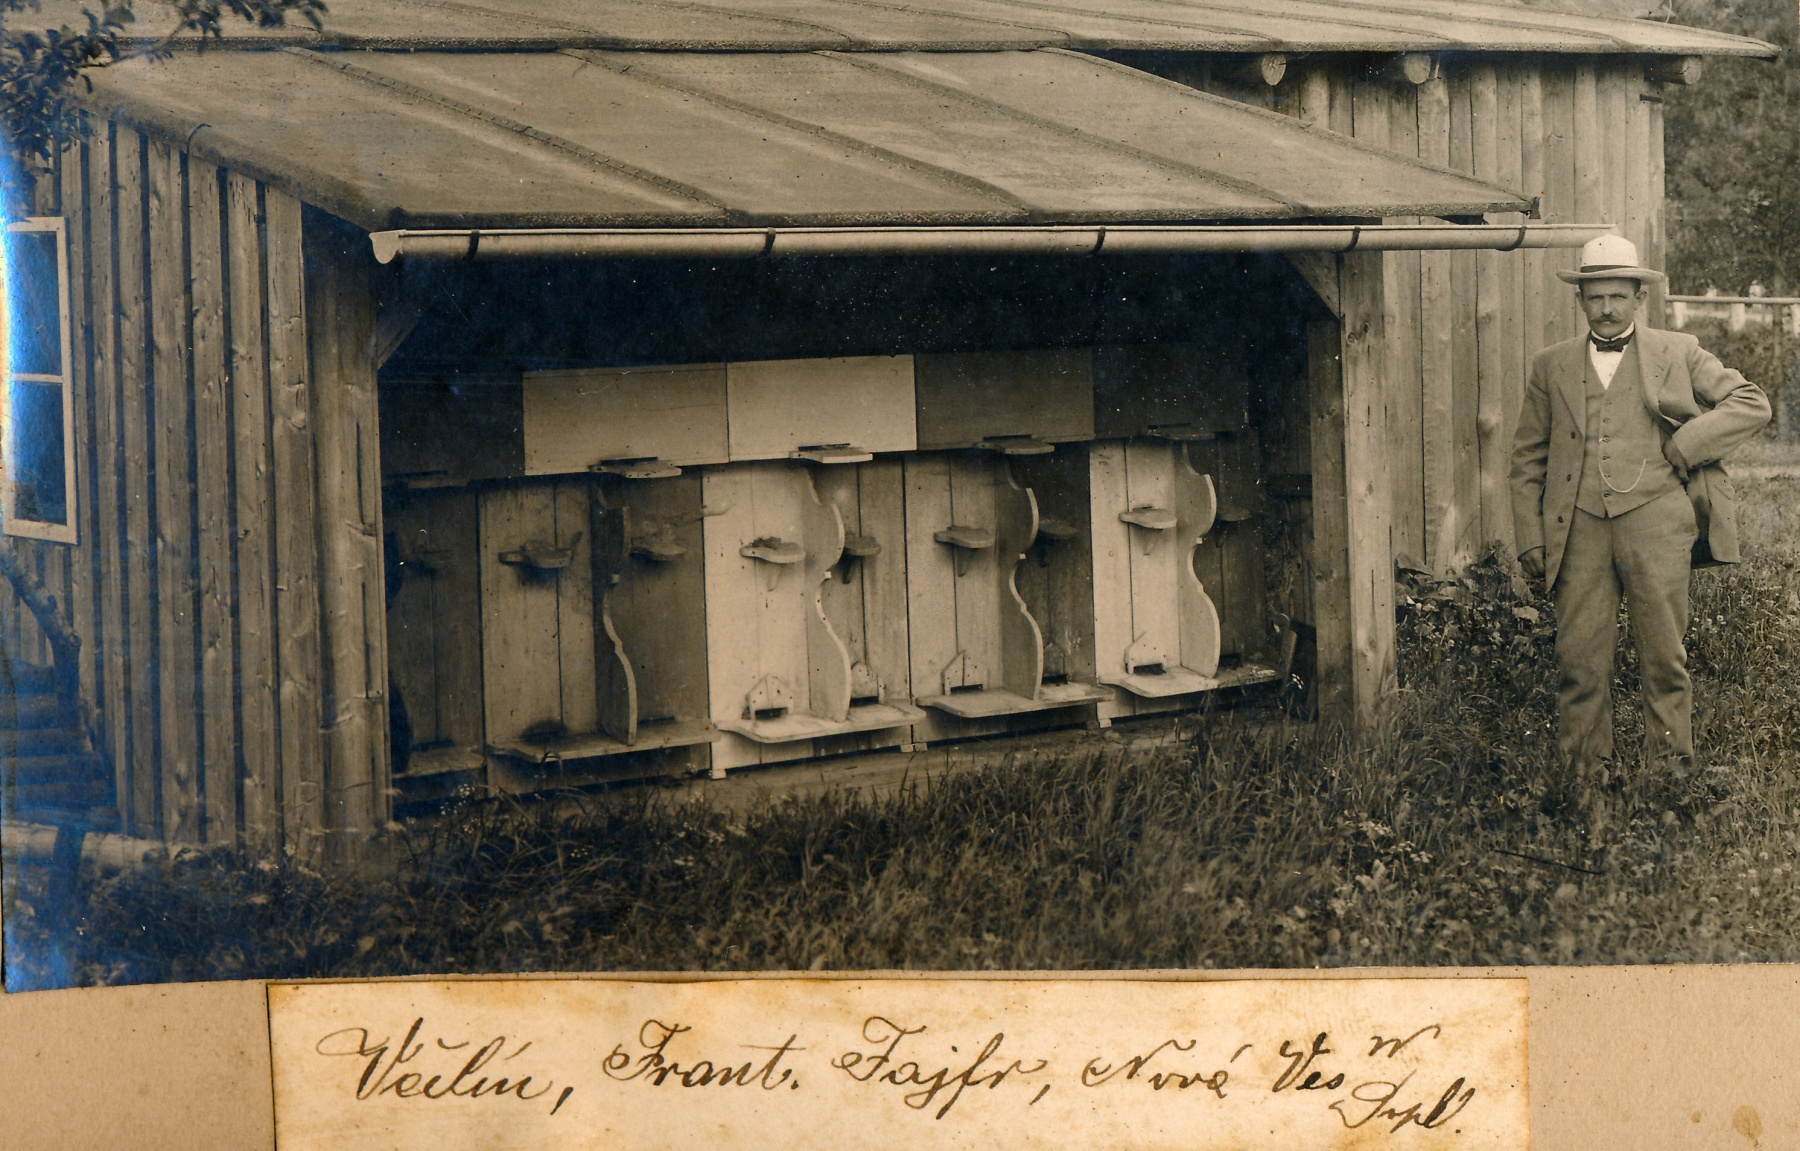 Včelín, Frant. Fajfr, Nová Ves